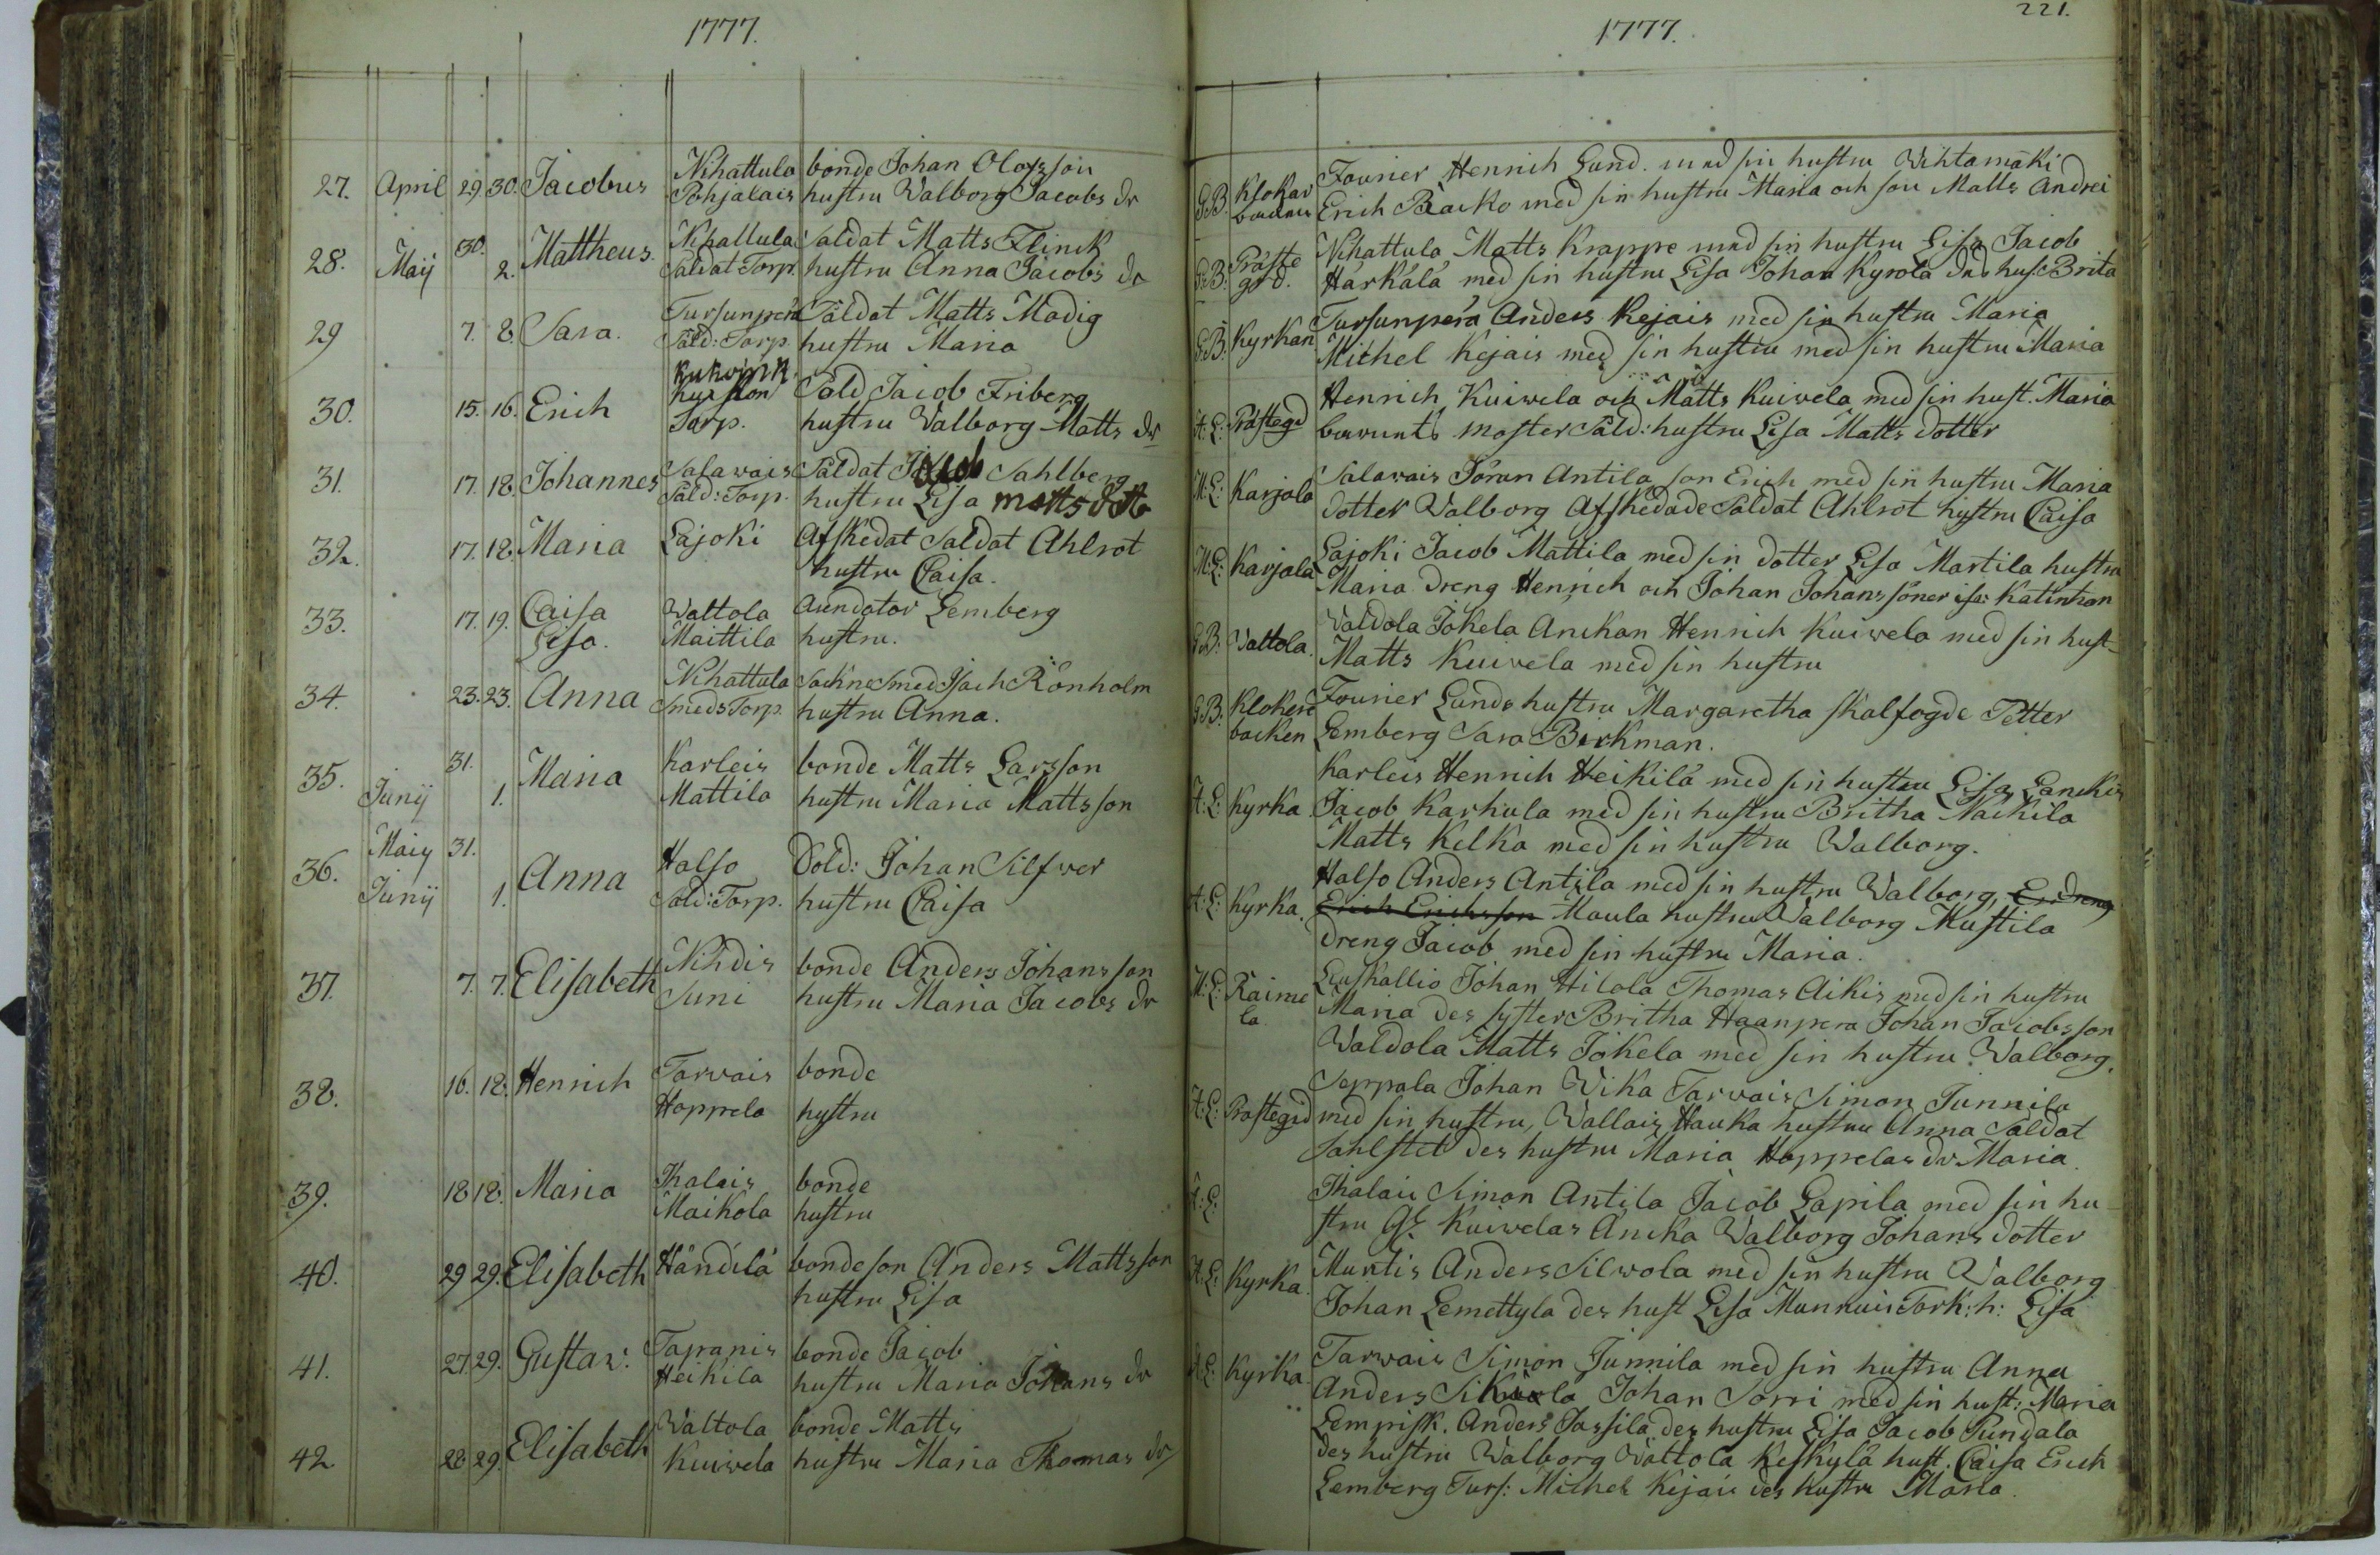 1777.
27. April 29. 30. Jacobus Nihattula bonde Johan Olofsson
Pohjalais hustru Walborg Jacobs dr
28. Maij 30. 2. Mattheus. Nihattula Saldat Matts Flinck
Saldat Torp. hustru Anna Jacobs dr
29 7. 8. Sara. Tursunperä Saldat Matts Modig
Sald: Torp. hustru Maria
30. 15. 16. Erich Sald Jacob Friberg
Torp. hustru Walborg Matts dr
31. 17. 18. Johannes Salavais Saldat Jacob Sahlberg
Sald: Torp. hustru Lisa matts dott
32. 17. 18. Maria Lajoki Afskedat Saldat Ahlrot
hustru Caisa.
33. 17. 19. Caisa Waltola Arendator Lemberg
Lisa. Maittila hustru.
34. 23. 23. Anna Nihattula Sockne Smed Isach Rönholm
Smeds Torp. hustru Anna.
35. Junij 31. 1. Maria Karleis bonde Matts Larsson
Mattila hustru Maria Mattsson
36. Maij 31. Anna Halso Sold: Johan Silfwer
Junij 1. Sold: Torp. hustru Caisa
37. 7. 7. Elisabeth Nihdis bonde Anders Johansson
Suni hustru Maria Jacobs dr
38. 16. 18. Henrich Tarvais bonde
Hoppela hustru
39. 18 18. Maria Ihalais bonde
Maikola hustru
40. 29 29. Elisabeth Händilä bondeson Anders Mattsson
hustru Lisa
41. 27. 29. Gustav. Tapanis bonde Jacob
Heikila hustru Maria Johans dr
42. 28 29. Elisabeth Waltola bonde Matts
Kuivela hustru Maria Thomas dr
1777.
221.
G.B. Klokar Fourier Henrich Lund. med sin hustru Wihtamäki
backen Erich Backo med sin hustru Maria och son Matts Andrei
G.B. Präste Nihattula Matts Krappe med sin hustru Lisa Jacob
grd. Härkälä med sin hustru Lisa Johan Kyrola des hus: Brita
G.B. Kyrkan Tursunperä Anders Kejais med sin hustru Maria
Michel Kejais med sin hustru med sin hustru Maria
A: L: Prästegd Henrich Kuivela och Matts Kuivela med sin hust. Maria
moster Sald: hustru Lisa Matts dotter
M: L: Karjala Salavais Jöran Antila son Erich med sin hustru Maria
dotter Walborg Afskedade Saldat Ahlrot hustru Caisa
M: L: Karjala Lajoki Jacob Mattila med sin dotter Lisa Martila hustru
Maria dreng Henrich och Johan Johans söner
G.B. Valtola. Valdola Jokela Henrich Kuivela med sin hust-
Matts Kuivela med sin hustru
G.B. Klokere Fourier Lunds hustru Margaretha skalfogde Petter
backen Lemberg Sara Birkman.
A: L: Kyrka Karleis Henrich Heikilä med sin hustru Lisa
Jacob Karhula med sin hustru Britha Nackila
Matts Kelka med sin hustru Walborg.
A: L: Kyrka. Halso Anders Antila med sin hustru Walborg,
Erich Erichsson Maula hustru Walborg Mustila
dreng Jacob med sin hustru Maria.
M: L: Raime Leuskallio Johan Hilola Thomas Aikis med sin hustru
la Maria des syster Britha Haanpera Johan Jacobsson
Waldola Matts Jokela med sin hustru Walborg.
A: L: Prästegd Seppala Johan Wika Tarvais Simon Junnila
med sin hustru, Vallais Hauka hustru Anna Saldat
Sahlstet des hustru Maria Hoppelas dr Maria.
A: L: Ihalais Simon Antila Jacob Lapila med sin hu-
stru Kuivelas Ancka Walborg Johans dotter
A: L: Kyrka. Muntis Anders Silvola med sin hustru Walborg
Johan Lemettyla des hust Lisa Munnuis Tork: h: Lisa
A: L: Kyrka. Tarwais Simon Junnila med sin hustru Anna
Anders Johan Sorri med sin hust: Maria
Anders Jassila des hustru Lisa Jacob Pundala
des hustru Walborg Waltola Keskylä hust. Caisa Erich
Lemberg Turs: Michel Kejais des hustru Maria.